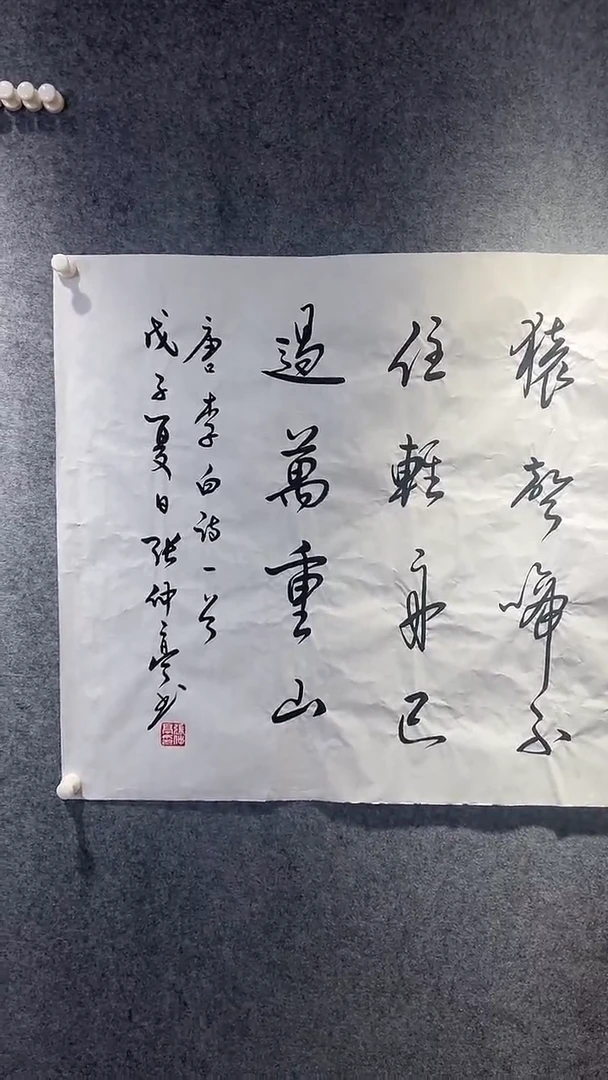 猿聲啼不
住輕舟已
過萬重山
唐李白詩一首
戊子夏日張仲亭书
張仲亭書